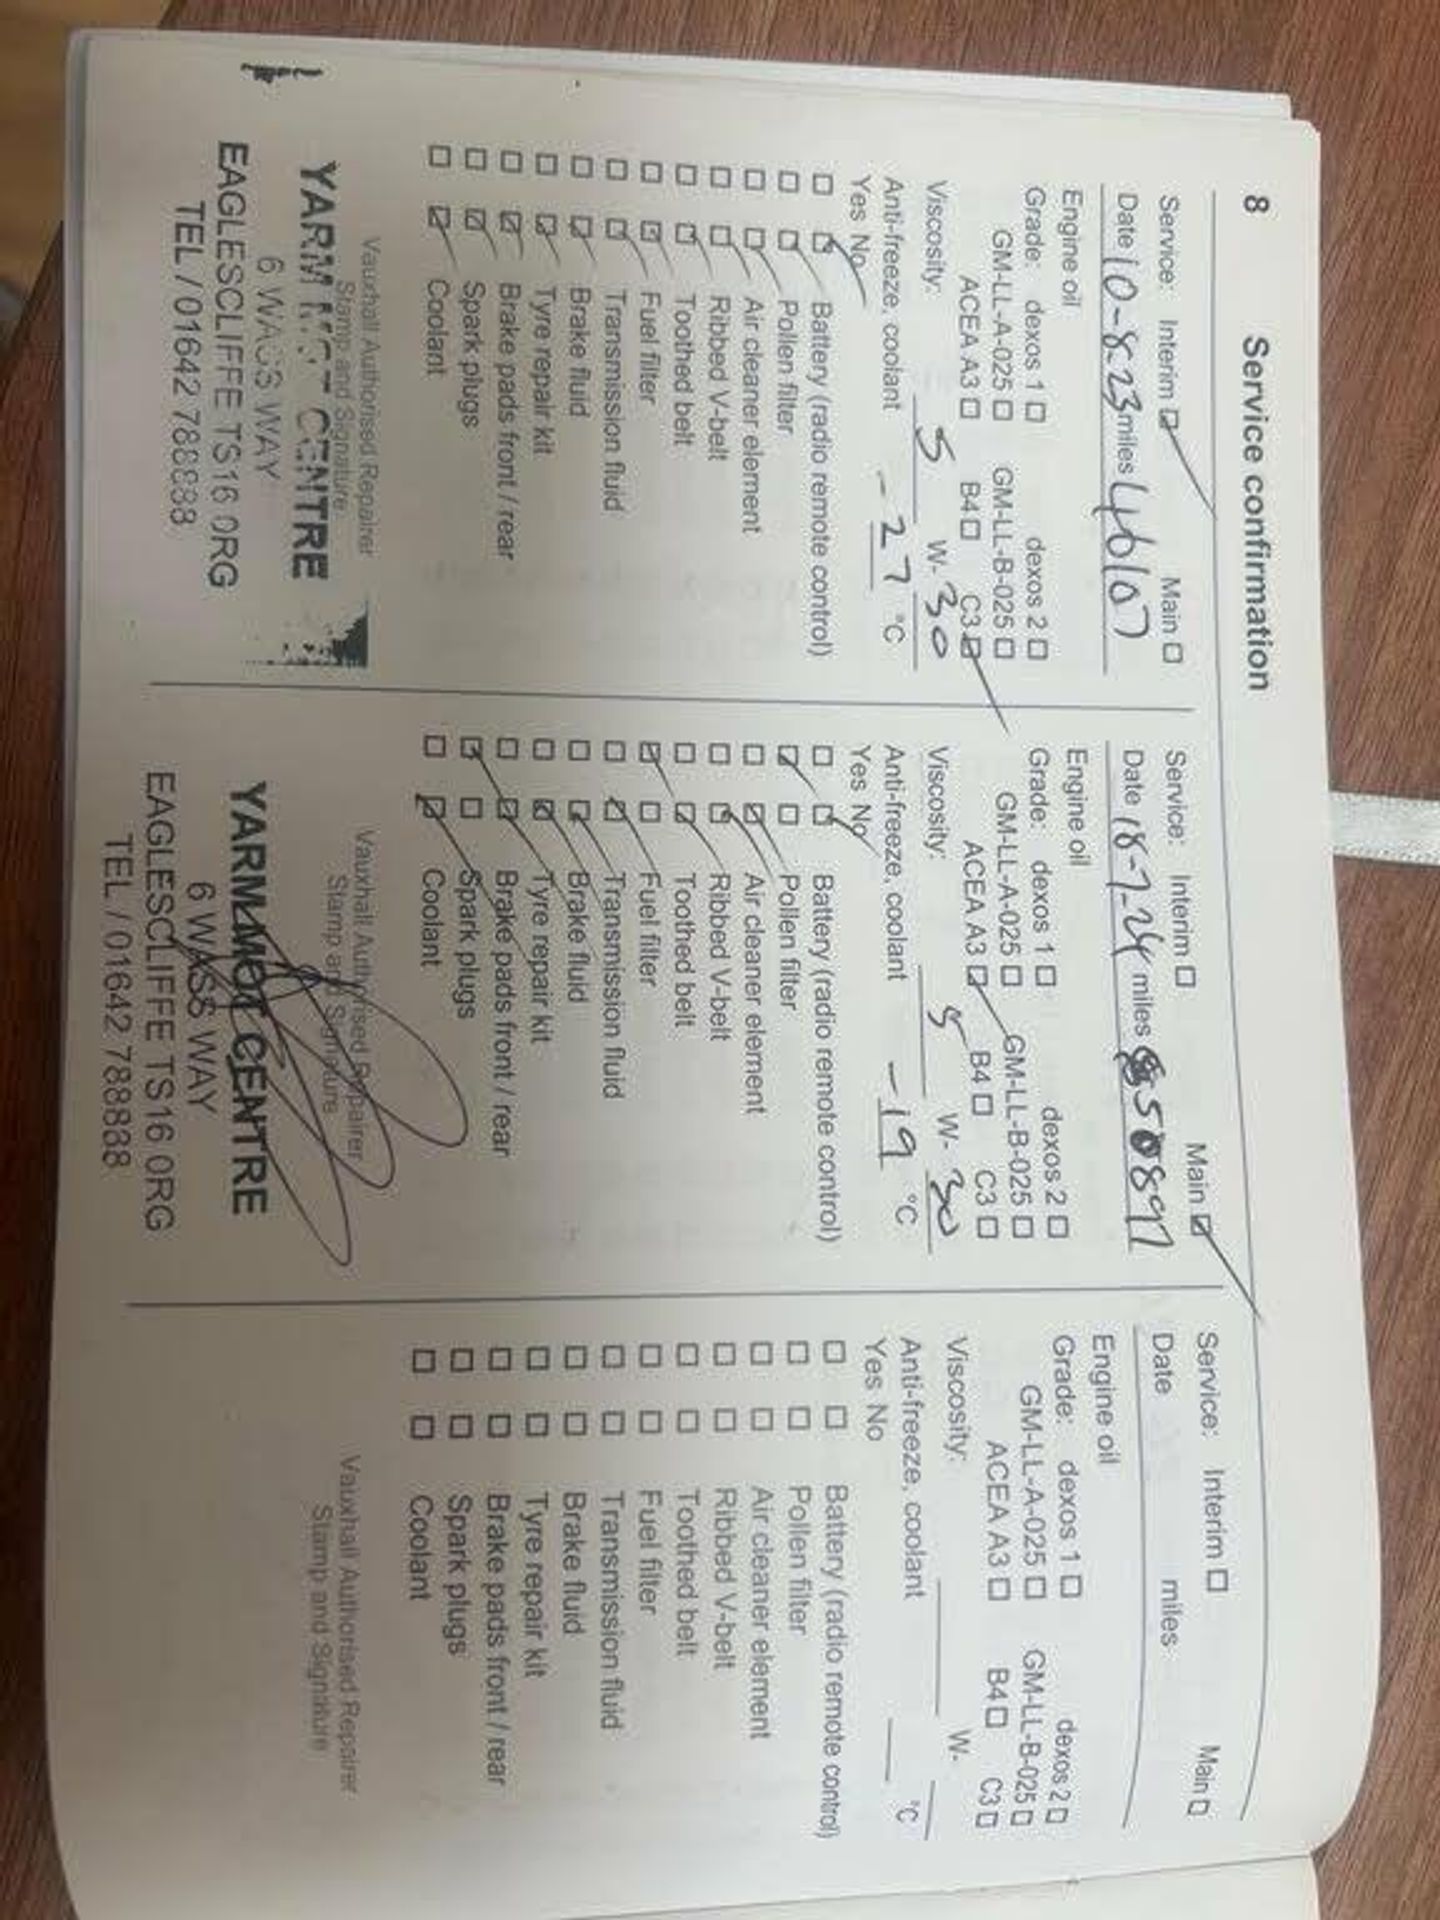 8 Service confirmation
Service: Interim ☑ Main ☐
Date 10-8-23 miles 46107
Engine oil
Grade: dexos 1 ☐ dexos 2 ☐
GM-LL-A-025 ☐ GM-LL-B-025 ☐
ACEA A3 ☐ B4 ☐ C3 ☑
Viscosity: 5 W- 30
Anti-freeze, coolant -27 °C
Yes No
☐ ☑ Battery (radio remote control)
☐ ☑ Pollen filter
☐ ☑ Air cleaner element
☐ ☑ Ribbed V-belt
☐ ☑ Toothed belt
☐ ☑ Fuel filter
☐ ☑ Transmission fluid
☐ ☑ Brake fluid
☐ ☑ Tyre repair kit
☐ ☑ Brake pads front / rear
☐ ☑ Spark plugs
☐ ☑ Coolant
Vauxhall Authorised Repairer
Stamp and Signature
YARM MOT CENTRE
6 WASS WAY
EAGLESCLIFFE TS16 0RG
TEL / 01642 788888
Service: Interim ☐ Main ☑
Date 18-7-24 miles 50897
Engine oil
Grade: dexos 1 ☐ dexos 2 ☐
GM-LL-A-025 ☐ GM-LL-B-025 ☐
ACEA A3 ☑ B4 ☐ C3 ☐
Viscosity: 5 W- 30
Anti-freeze, coolant -19 °C
Yes No
☐ ☑ Battery (radio remote control)
☑ ☐ Pollen filter
☐ ☑ Air cleaner element
☐ ☑ Ribbed V-belt
☐ ☑ Toothed belt
☑ ☐ Fuel filter
☐ ☑ Transmission fluid
☐ ☑ Brake fluid
☐ ☑ Tyre repair kit
☐ ☑ Brake pads front / rear
☑ ☐ Spark plugs
☐ ☑ Coolant
Vauxhall Authorised Repairer
Stamp and Signature
YARM MOT CENTRE
6 WASS WAY
EAGLESCLIFFE TS16 0RG
TEL / 01642 788888
Service: Interim ☐ Main ☐
Date miles
Engine oil
Grade: dexos 1 ☐ dexos 2 ☐
GM-LL-A-025 ☐ GM-LL-B-025 ☐
ACEA A3 ☐ B4 ☐ C3 ☐
Viscosity: W-
Anti-freeze, coolant °C
Yes No
☐ ☐ Battery (radio remote control)
☐ ☐ Pollen filter
☐ ☐ Air cleaner element
☐ ☐ Ribbed V-belt
☐ ☐ Toothed belt
☐ ☐ Fuel filter
☐ ☐ Transmission fluid
☐ ☐ Brake fluid
☐ ☐ Tyre repair kit
☐ ☐ Brake pads front / rear
☐ ☐ Spark plugs
☐ ☐ Coolant
Vauxhall Authorised Repairer
Stamp and Signature